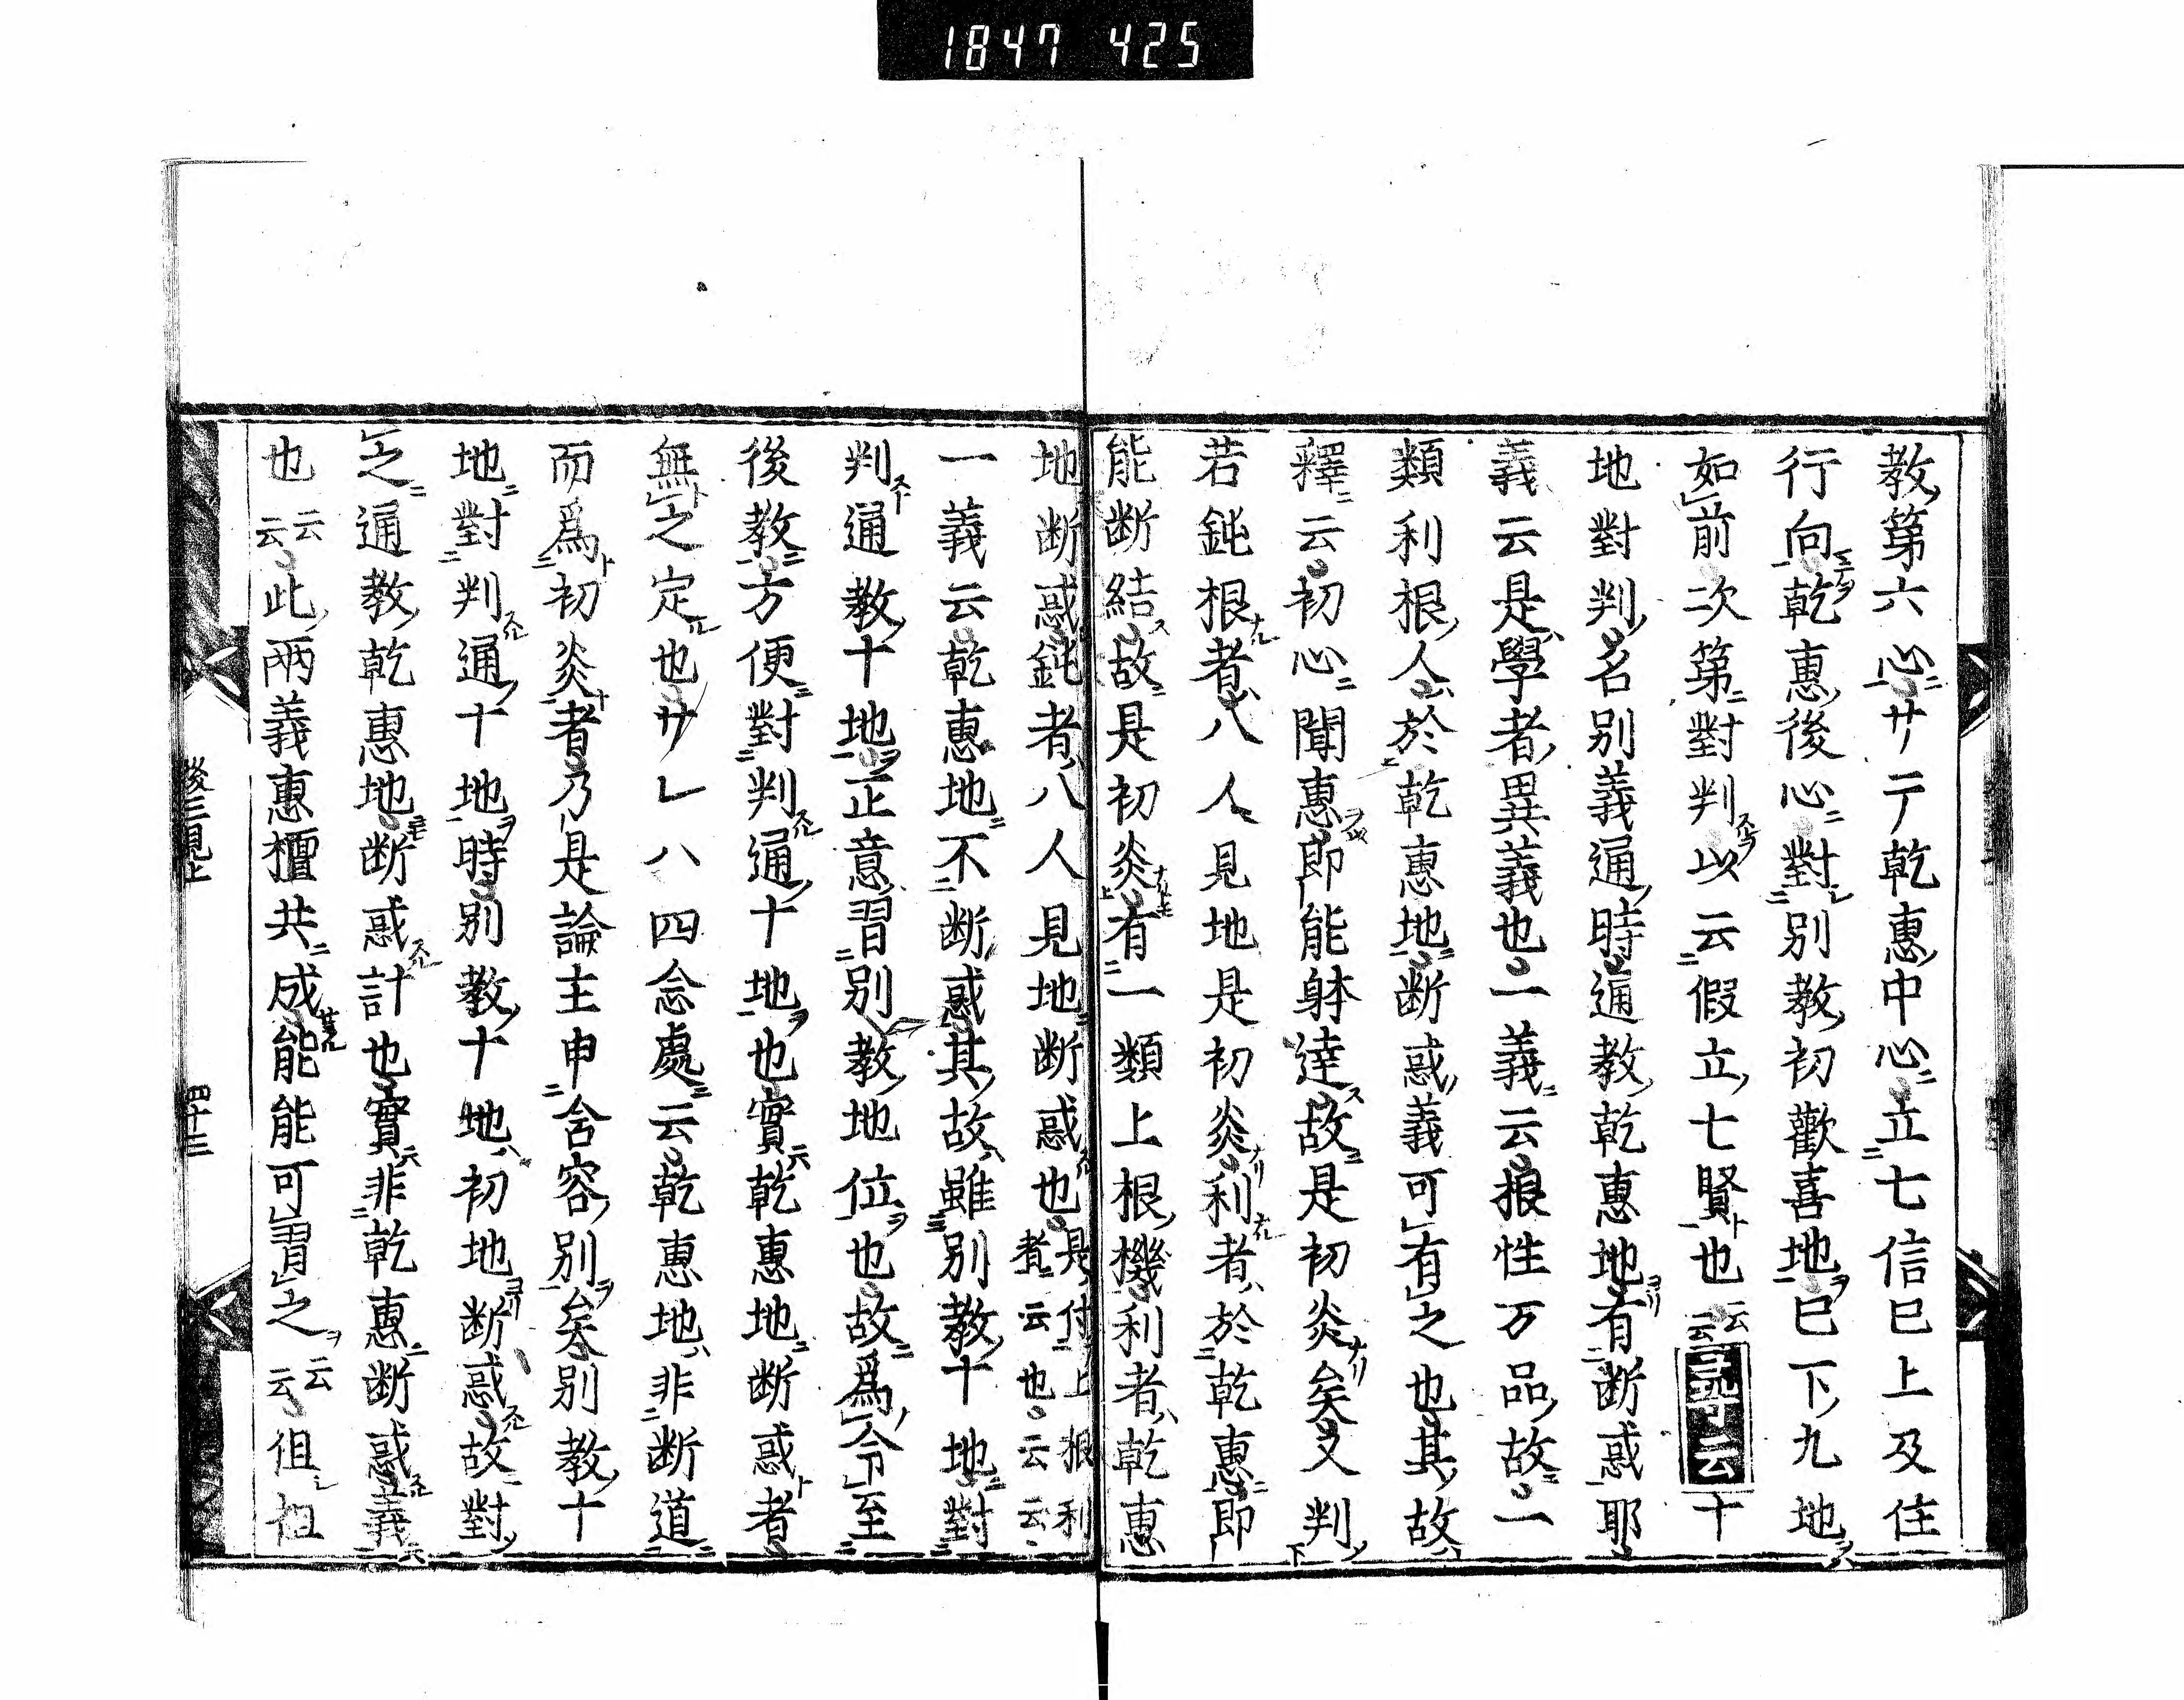 1847 425
教第六心サ二丁乾惠中心立七信巳上及住
行向乾惠後心對別教初歡喜地巳下九地
如前次第對判以云假立七賢也云云 十
地對判名別義通時通教乾惠地有断惑耶
義云是學者異義也一義云根性万品故一
類利根人於乾惠地断惑義可有之也其故
釋云初心聞惠即能躰達故是初炎矣又判
若鈍根者八人見地是初炎利者於乾惠即
能断結故是初炎有一類上根機利者乾惠
地断惑鈍者八人見地断惑也是付上根利者云也云云
一義云乾惠地不断惑其故雖別教十地對
判通教十地正意習別教地位也故爲令至
後教方便對判通十地也實乾惠地断惑者
無之定也サレハ四念處云乾惠地非断道
而爲初炎者乃是論主申含容別矣別教十
地對判通十地時別教十地初地断惑故對
之通教乾惠地断惑計也實非乾惠断惑義
也云云此兩義惠檀共成能能可謂之云云徂徂
後三見上
四十三